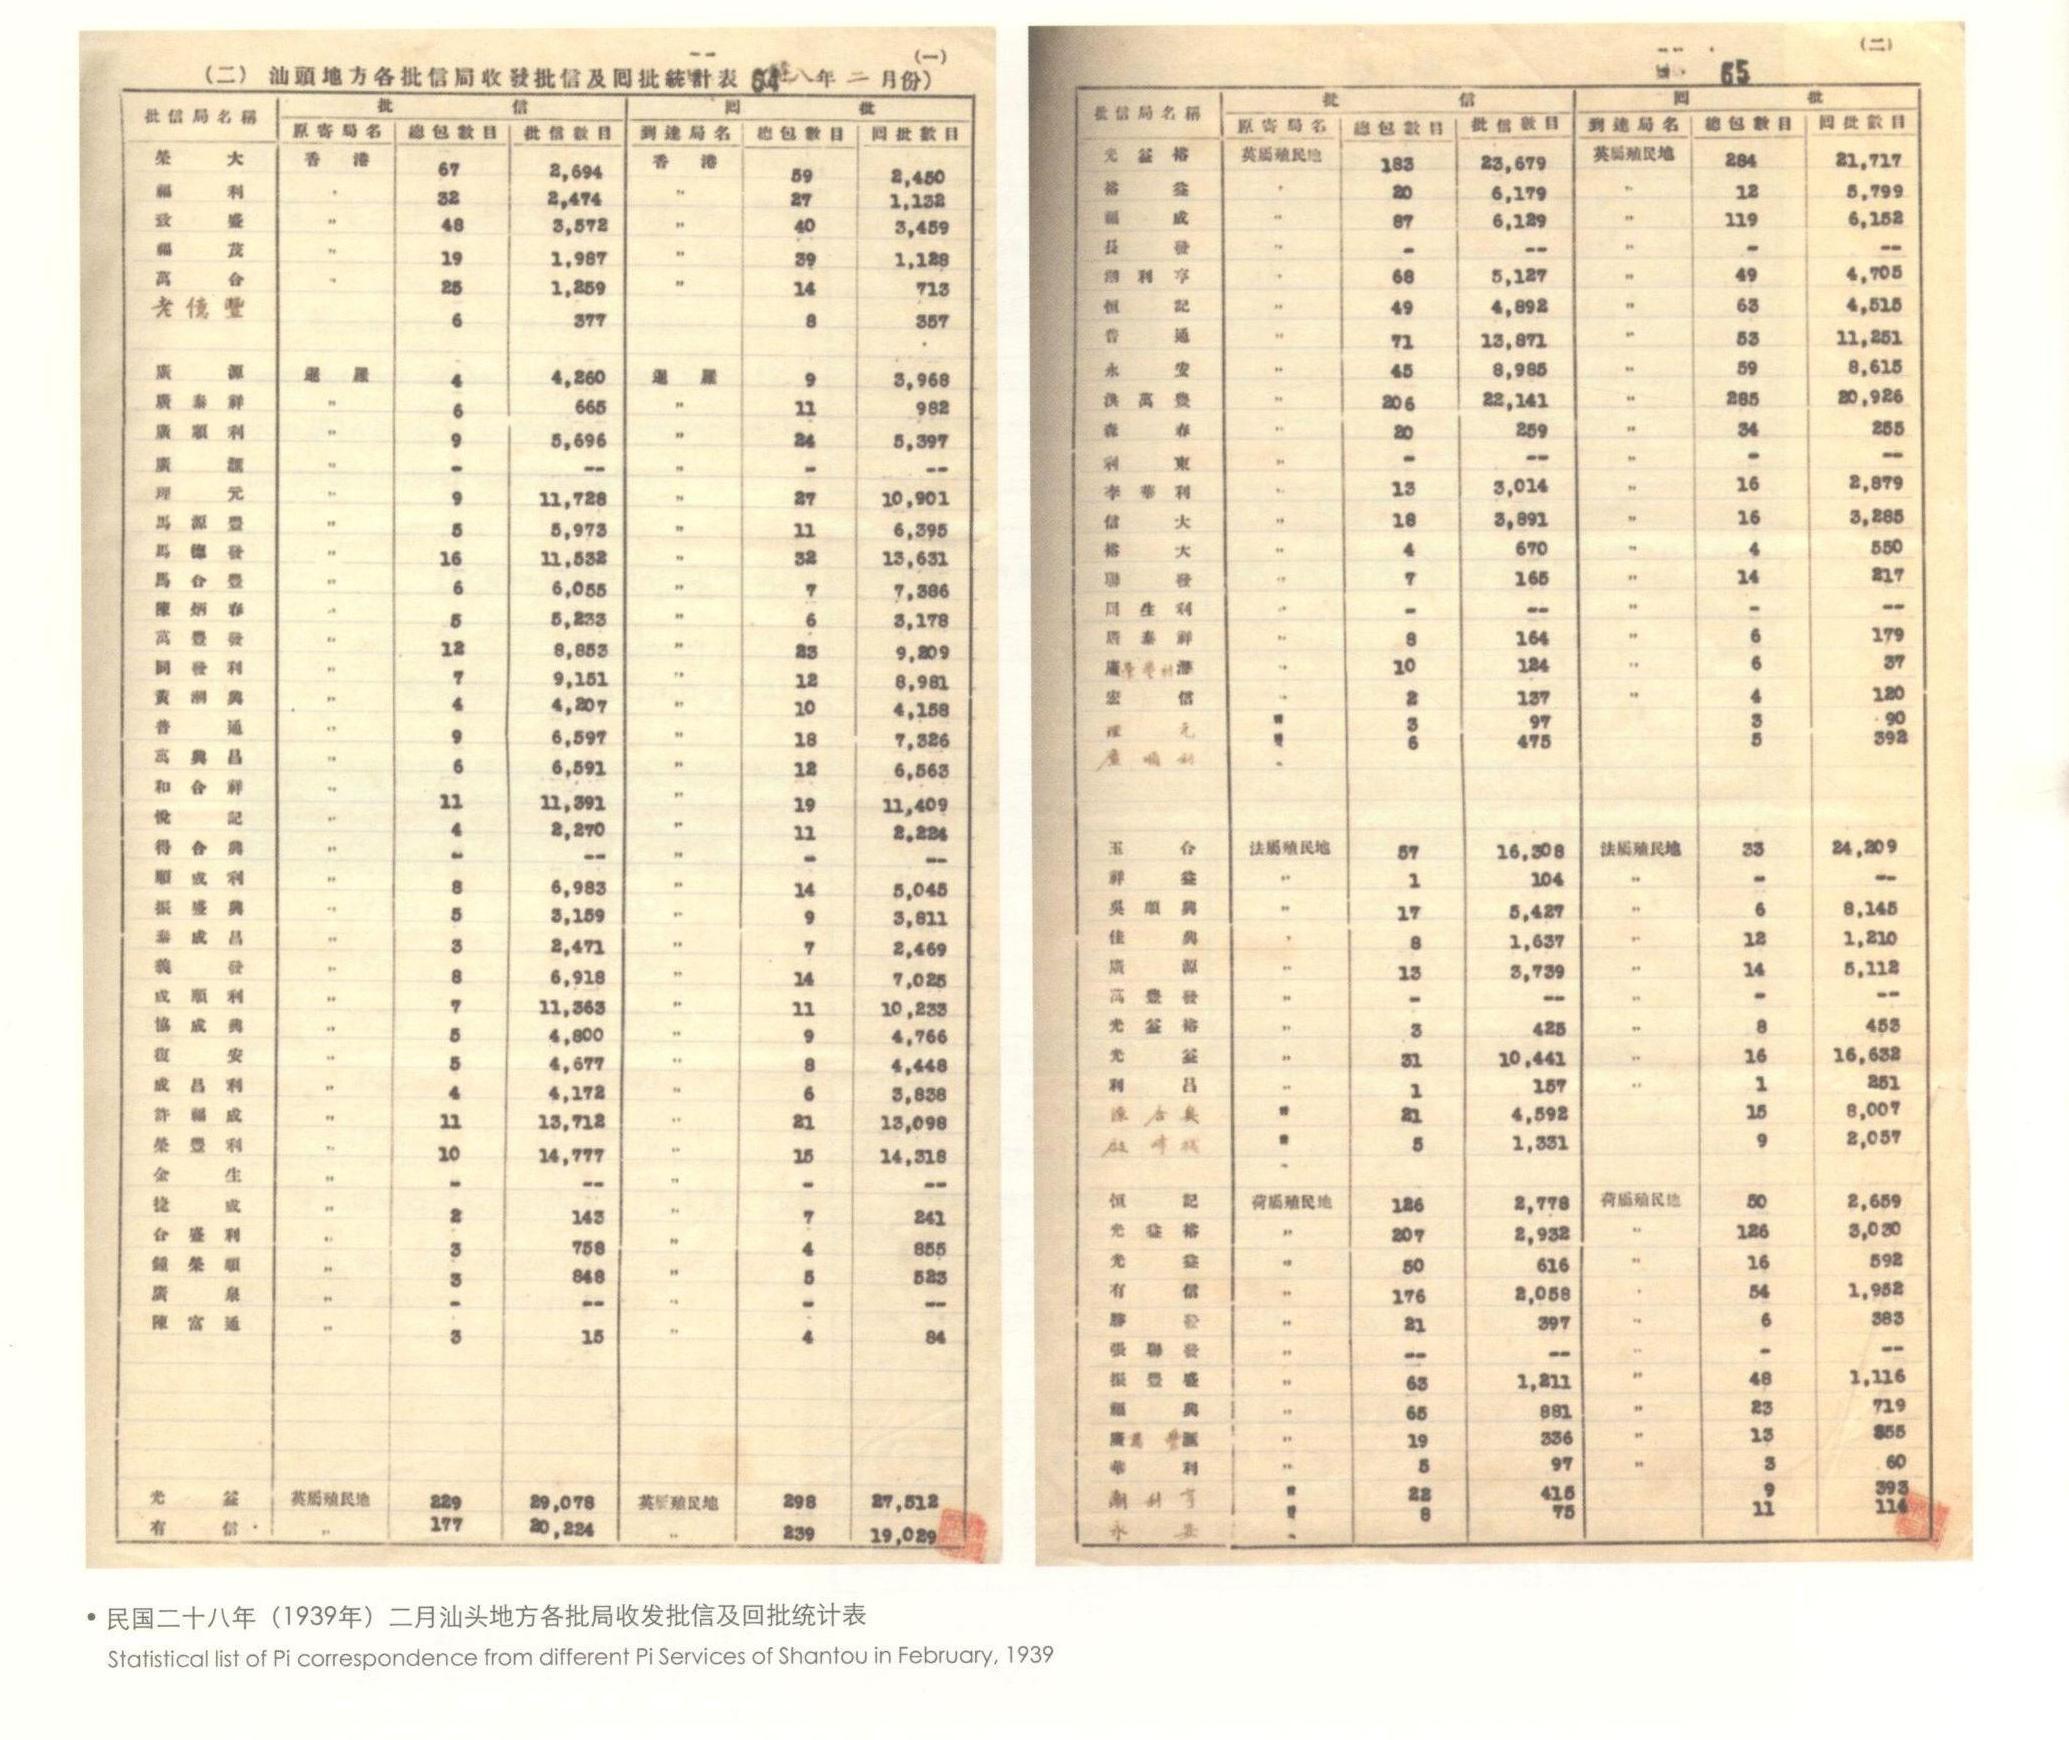 (一)
(二) 汕頭地方各批信局收發批信及囘批統計表 64 八年 二 月份)
批信局名稱 批 信 囘 批
原寄局名 總包數目 批信數目 到達局名 總包數目 回批數目
榮大 香港 67 2,694 香港 59 2,450
福利 " 32 2,474 " 27 1,132
致盛 " 48 3,572 " 40 3,459
福茂 " 19 1,987 " 39 1,128
萬合 " 25 1,259 " 14 713
老億豐 6 377 8 357
廣源 暹羅 4 4,260 暹羅 9 3,968
廣泰祥 " 6 665 " 11 982
廣順利 " 9 5,696 " 24 5,397
廣滙 " - -- " - --
理元 " 9 11,728 " 27 10,901
馬源豐 " 5 5,973 " 11 6,395
馬德發 " 16 11,532 " 32 13,631
馬合豐 " 6 6,055 " 7 7,386
陳炳春 " 5 5,233 " 6 3,178
萬豐發 " 12 8,853 " 23 9,209
同發利 " 7 9,151 " 12 8,981
黃潮興 " 4 4,207 " 10 4,158
普通 " 9 6,597 " 18 7,326
萬興昌 " 6 6,591 " 12 6,563
和合祥 " 11 11,391 " 19 11,409
悅記 " 4 2,270 " 11 2,224
得合興 " - -- " - --
順成利 " 8 6,983 " 14 5,045
振盛興 " 5 3,159 " 9 3,811
泰成昌 " 3 2,471 " 7 2,469
義發 " 8 6,918 " 14 7,025
成順利 " 7 11,363 " 11 10,233
協成興 " 5 4,800 " 9 4,766
復安 " 5 4,677 " 8 4,448
成昌利 " 4 4,172 " 6 3,838
許福成 " 11 13,712 " 21 13,098
榮豐利 " 10 14,777 " 15 14,318
金生 " - -- " - --
捷成 " 2 143 " 7 241
合盛利 " 3 758 " 4 855
鍾榮順 " 3 848 " 5 523
廣泉 " - -- " - --
陳富通 " 3 15 " 4 84
光益 英屬殖民地 229 29,078 英屬殖民地 298 27,512
有信 " 177 20,224 " 239 19,029
(二)
65
批信局名稱 批 信 囘 批
原寄局名 總包數目 批信數目 到達局名 總包數目 回批數目
光益裕 英屬殖民地 183 23,679 英屬殖民地 284 21,717
裕益 " 20 6,179 " 12 5,799
福成 " 87 6,129 " 119 6,152
長發 " - -- " - --
潮利亨 " 68 5,127 " 49 4,705
恒記 " 49 4,892 " 63 4,515
普通 " 71 13,871 " 53 11,251
永安 " 45 8,985 " 59 8,615
洪萬豐 " 206 22,141 " 285 20,926
森春 " 20 259 " 34 255
利東 " - -- " - --
李華利 " 13 3,014 " 16 2,879
信大 " 18 3,891 " 16 3,285
裕大 " 4 670 " 4 550
聯發 " 7 165 " 14 217
周生利 " - -- " - --
廣泰祥 " 8 164 " 6 179
" 10 124 " 6 37
宏信 " 2 137 " 4 120
理元 " 3 97 3 90
廣順利 " 6 475 5 392
玉合 法屬殖民地 57 16,308 法屬殖民地 33 24,209
祥益 " 1 104 " - --
吳順興 " 17 5,427 " 6 8,145
佳興 " 8 1,637 " 12 1,210
廣源 " 13 3,739 " 14 5,112
萬豐發 " - -- " - --
光益裕 " 3 425 " 8 453
光益 " 31 10,441 " 16 16,632
利昌 " 1 157 " 1 251
" 21 4,592 15 8,007
" 5 1,331 9 2,057
恒記 荷屬殖民地 126 2,778 荷屬殖民地 50 2,659
光益裕 " 207 2,932 " 126 3,030
光益 " 50 616 " 16 592
有信 " 176 2,058 " 54 1,952
勝發 " 21 397 " 6 383
張聯發 " -- -- " - --
振豐盛 " 63 1,211 " 48 1,116
福興 " 65 881 " 23 719
" 19 336 " 13 355
華利 " 5 97 " 3 60
潮利亨 " 22 415 9 393
永安 " 8 75 11 114
• 民国二十八年（1939年）二月汕头地方各批局收发批信及回批统计表
Statistical list of Pi correspondence from different Pi Services of Shantou in February, 1939